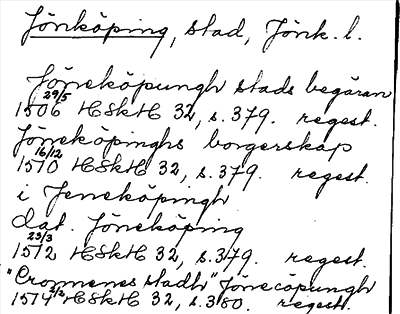 Jönköping, stad, Jönk. l.
Jöneköpungh stads begäran
1506 29/5 HSkH 32, s. 379. regest.
Jöneköpinghs borgerskap
1510 16/12 HSkH 32, s. 379. regest.
i Jeneköpingh
dat. Jöneköping
1512 23/3 HSkH 32, s. 379. regest.
"Cronnenes stadh" Jönecöpungh
1514 2/2 HSkH 32, s. 380. regest.